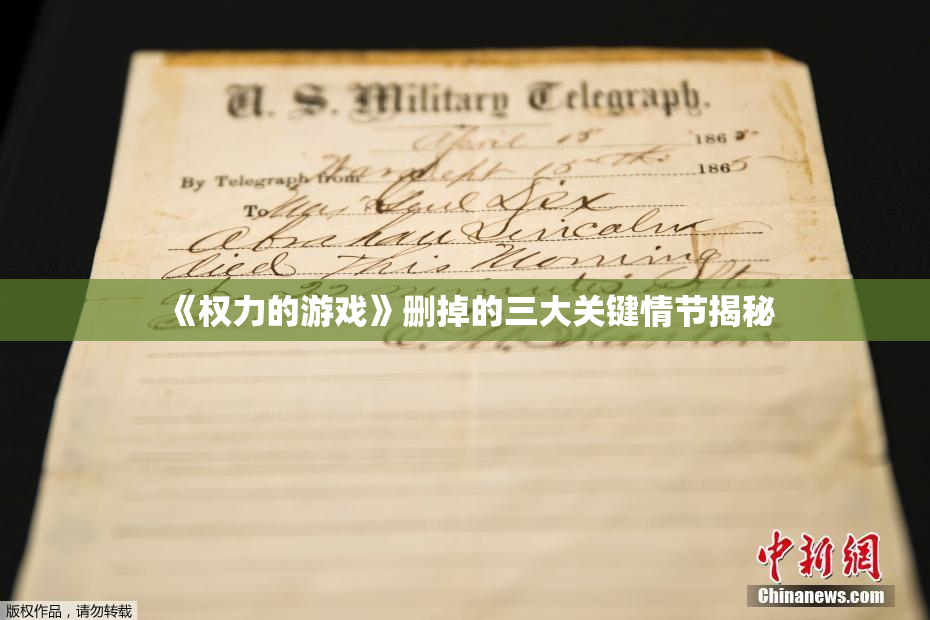 U. S. Military Telegraph.
April 15 1865
By Telegraph from War Dept 15th 1865
To Maj Genl Dix
Abraham Lincoln
died This Morning
at 22 minutes after
《权力的游戏》删掉的三大关键情节揭秘
E. M. Stanton
中新网
Chinanews.com
版权作品，请勿转载